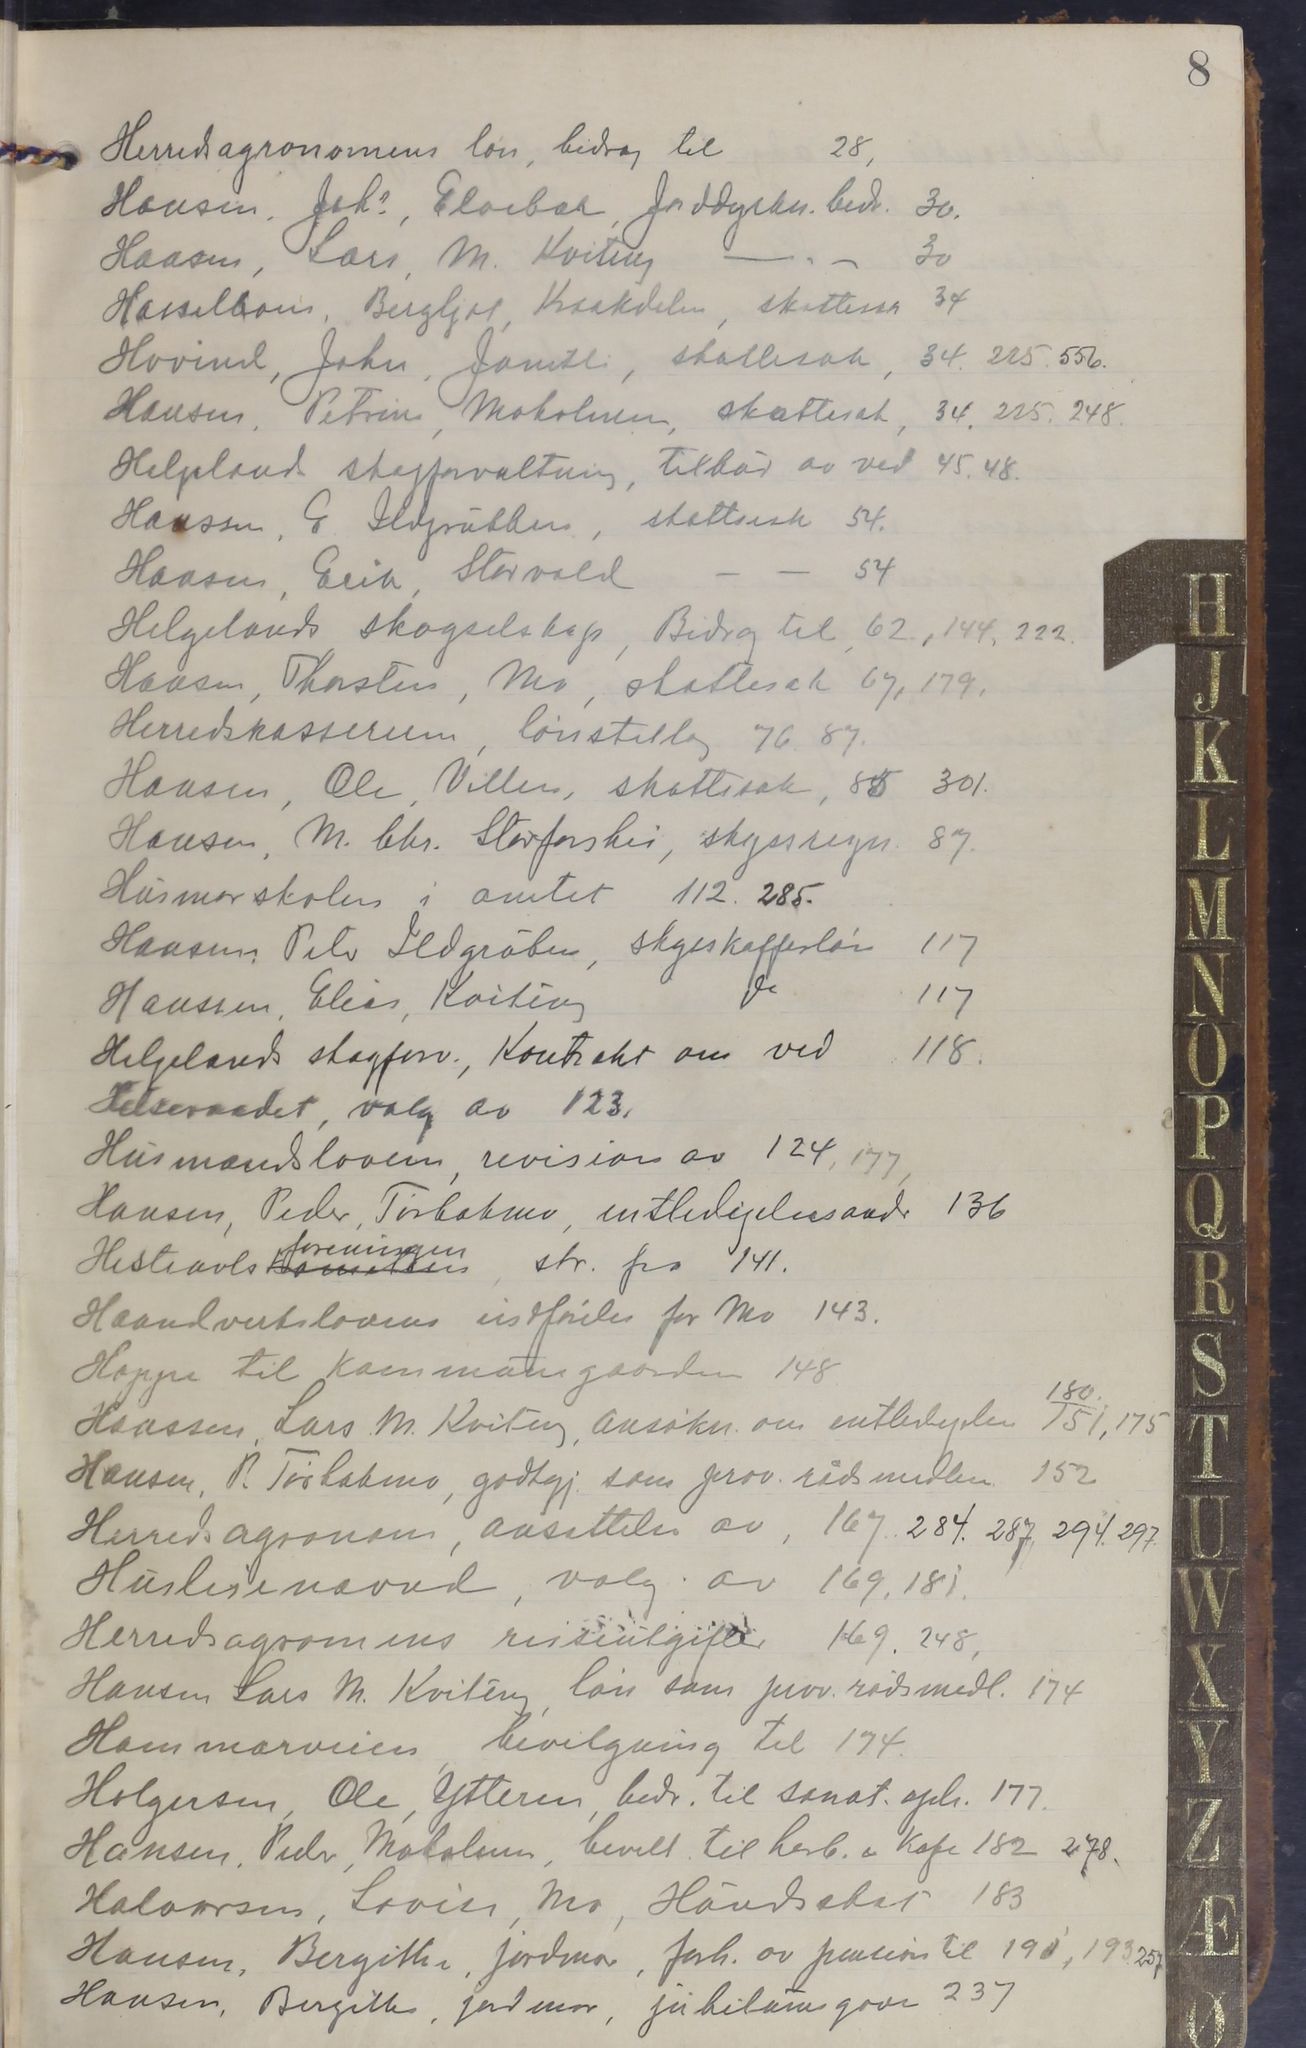 8
Herredsagronomens løn, bidrag til 28,
Hansen, Johs, Elvebak, Jorddyrkn. bidr. 30.
Hansen, Lars, M. Kviting — " — 30
Bergljot, Kraakdelen, skattesak 34
Hovind, John, Jamtli, skattesak, 34. 225. 556.
Hansen, Petrine, Moholmen, skattesak, 34. 225. 248.
Helgeland skogforvaltning, tilbud av ved 45. 48.
Hanssen, E. Ildgrubben, skattesak 54.
Hansen, Erik, Storvold — — 54
Helgelands skogselskap, Bidrag til, 62, 144, 222.
Hansen, Thorsten, Mo, skattesak 67, 179.
Herredskassereren, lønstillæg 76. 87.
Hansen, Ole, Villen, skattesak, 85 301.
Hansen, M. Chr. Storforshei, skyssregn. 87.
Husmorskolen i amtet 112. 285.
Hansen, Peder Ildgruben, skysskafferløn 117
Hanssen, Elias, Kviting do 117
Helgelands skogforv., Kontrakt om ved 118.
Helseraadet, valg av 123.
Husmandsloven, revision av 124, 177,
Hansen, Peder, Tørbakmo, entledigelsesandr 136
Hesteavlsforeningen, skr. fra 141.
Haandverksloven indføres for Mo 143.
Hoppe til Kommunegaarden 148
Hanssen, Lars M. Kviting, ansøkn. om entledigelse 180. 151, 175
Hansen, P. Tørbakmo, godtgj. som prov. rådsmedlem 152
Herredsagronom, ansettelse av, 167. 284. 287, 294. 297.
Husleienævnd, valg av 169, 181.
Herredsagromens reiseutgifter 169. 248,
Hansen Lars M. Kviting, løn som prov. rådsmedl. 174
Hammerveien, bevilgning til 174.
Holgersen, Ole, Ytteren, bidr. til sanat. oph. 177.
Hansen, Peder, Moholmen, bevill. til herb. & Kafe 182 278.
Halvorsen, Lovise, Mo, Hundeskat 183
Hansen, Bergitte, jordmor, forh. av pension til 190, 193 257
Hansen, Bergitte, jordmor, jubilæumsgave 237
H
J
K
L
M
N
O
P
Q
R
S
T
U
W
X
Y
Z
Æ
Ø